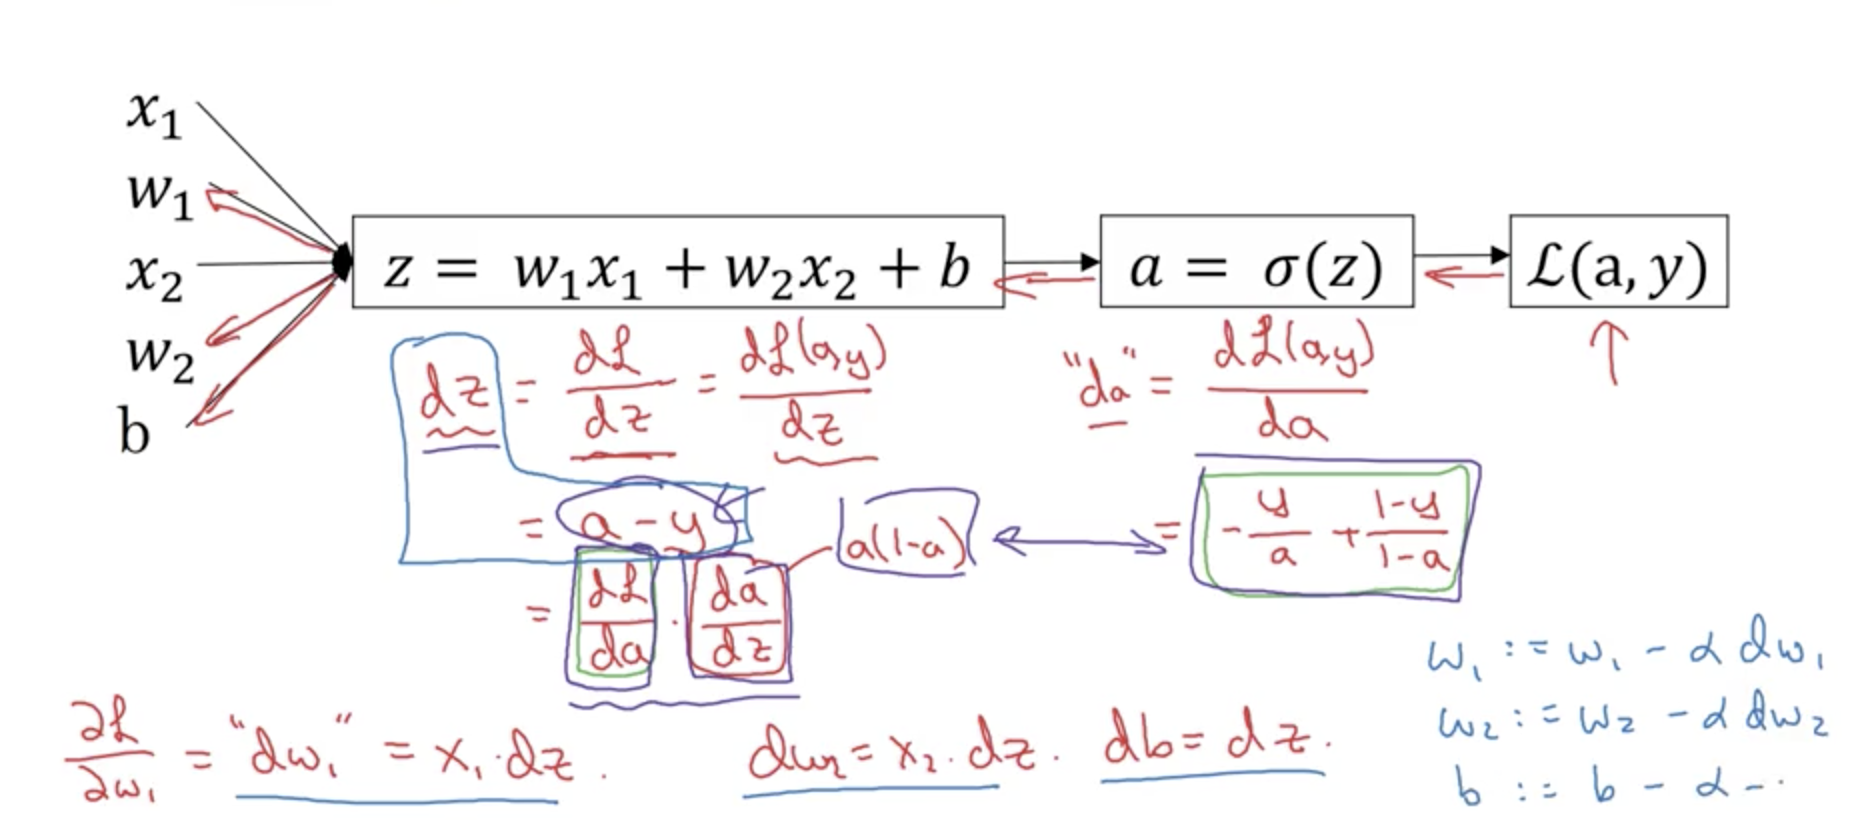 x₁
w₁
x₂
w₂
b
z = w₁x₁ + w₂x₂ + b
a = σ(z)
ℒ(a, y)
dz = dℒ/dz = dℒ(a,y)/dz
"da" = dℒ(a,y)/da
= a - y
a(1-a)
= - y/a + 1-y/1-a
= dℒ/da · da/dz
∂ℒ/∂w₁ = "dw₁" = x₁ · dz .
dw₂ = x₂ · dz .
db = dz .
w₁ := w₁ - α dw₁
w₂ := w₂ - α dw₂
b := b - α - ··